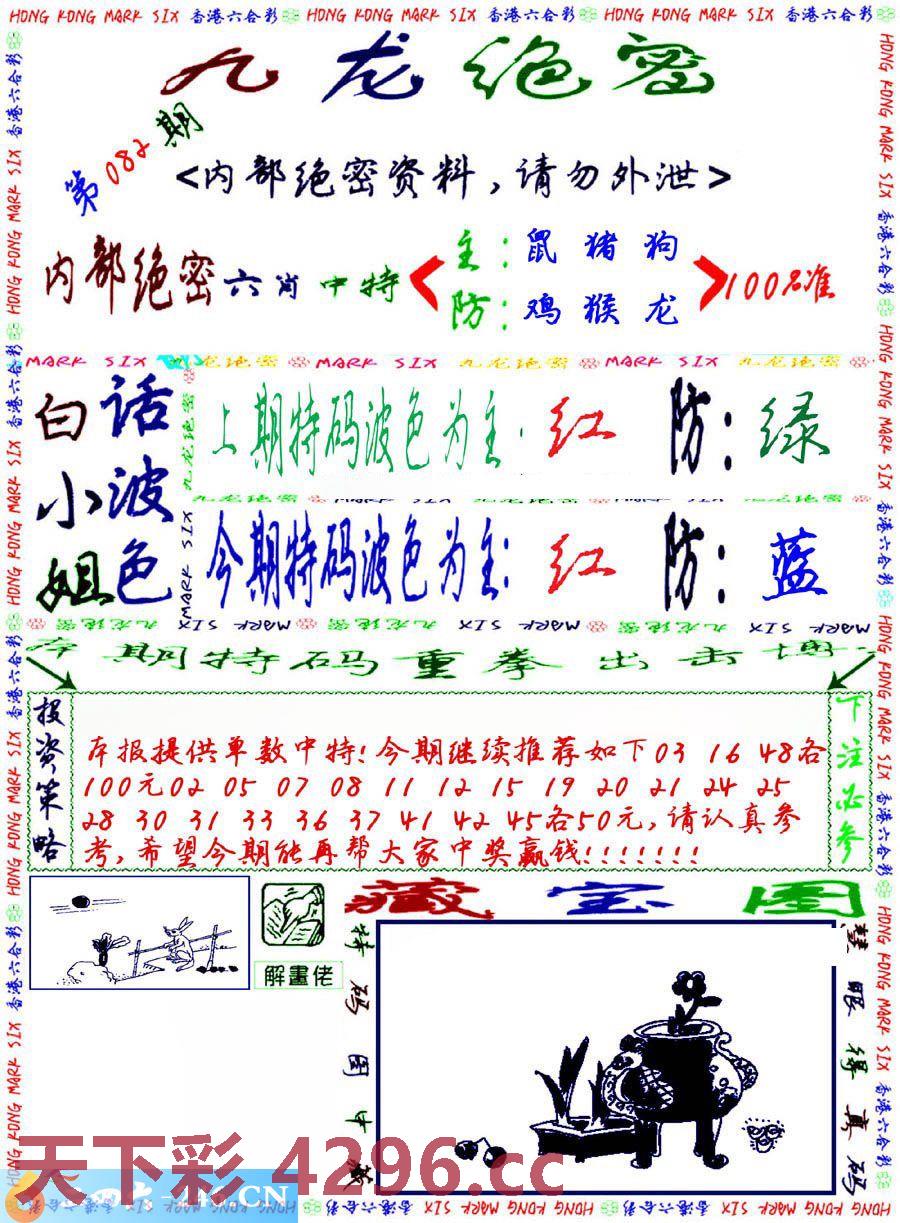 HONG KONG MARK SIX 香港六合彩 HONG KONG MARK SIX 香港六合彩 HONG KONG MARK SIX 香港六合彩
九龙绝密
第082期
<内部绝密资料，请勿外泄>
内部绝密六肖中特
主：鼠 猪 狗
防：鸡 猴 龙
100%准
MARK SIX 九龙绝密 MARK SIX 九龙绝密 MARK SIX 九龙绝密
白话
小波
姐色
上期特码波色为主：红 防：绿
今期特码波色为主：红 防：蓝
MARK SIX 九龙绝密 MARK SIX 九龙绝密 MARK SIX 九龙绝密 MARK SIX
本期特码重拳出击博
投资策略
本报提供单数中特！今期继续推荐如下03 16 48各
100元02 05 07 08 11 12 15 19 20 21 24 25
28 30 31 33 36 37 41 42 45各50元，请认真参
考，希望今期能再帮大家中奖赢钱！！！！！！！
下注必参
解畫佬
藏宝图
特码图中藏
慧眼得真码
天下彩 4296.cc